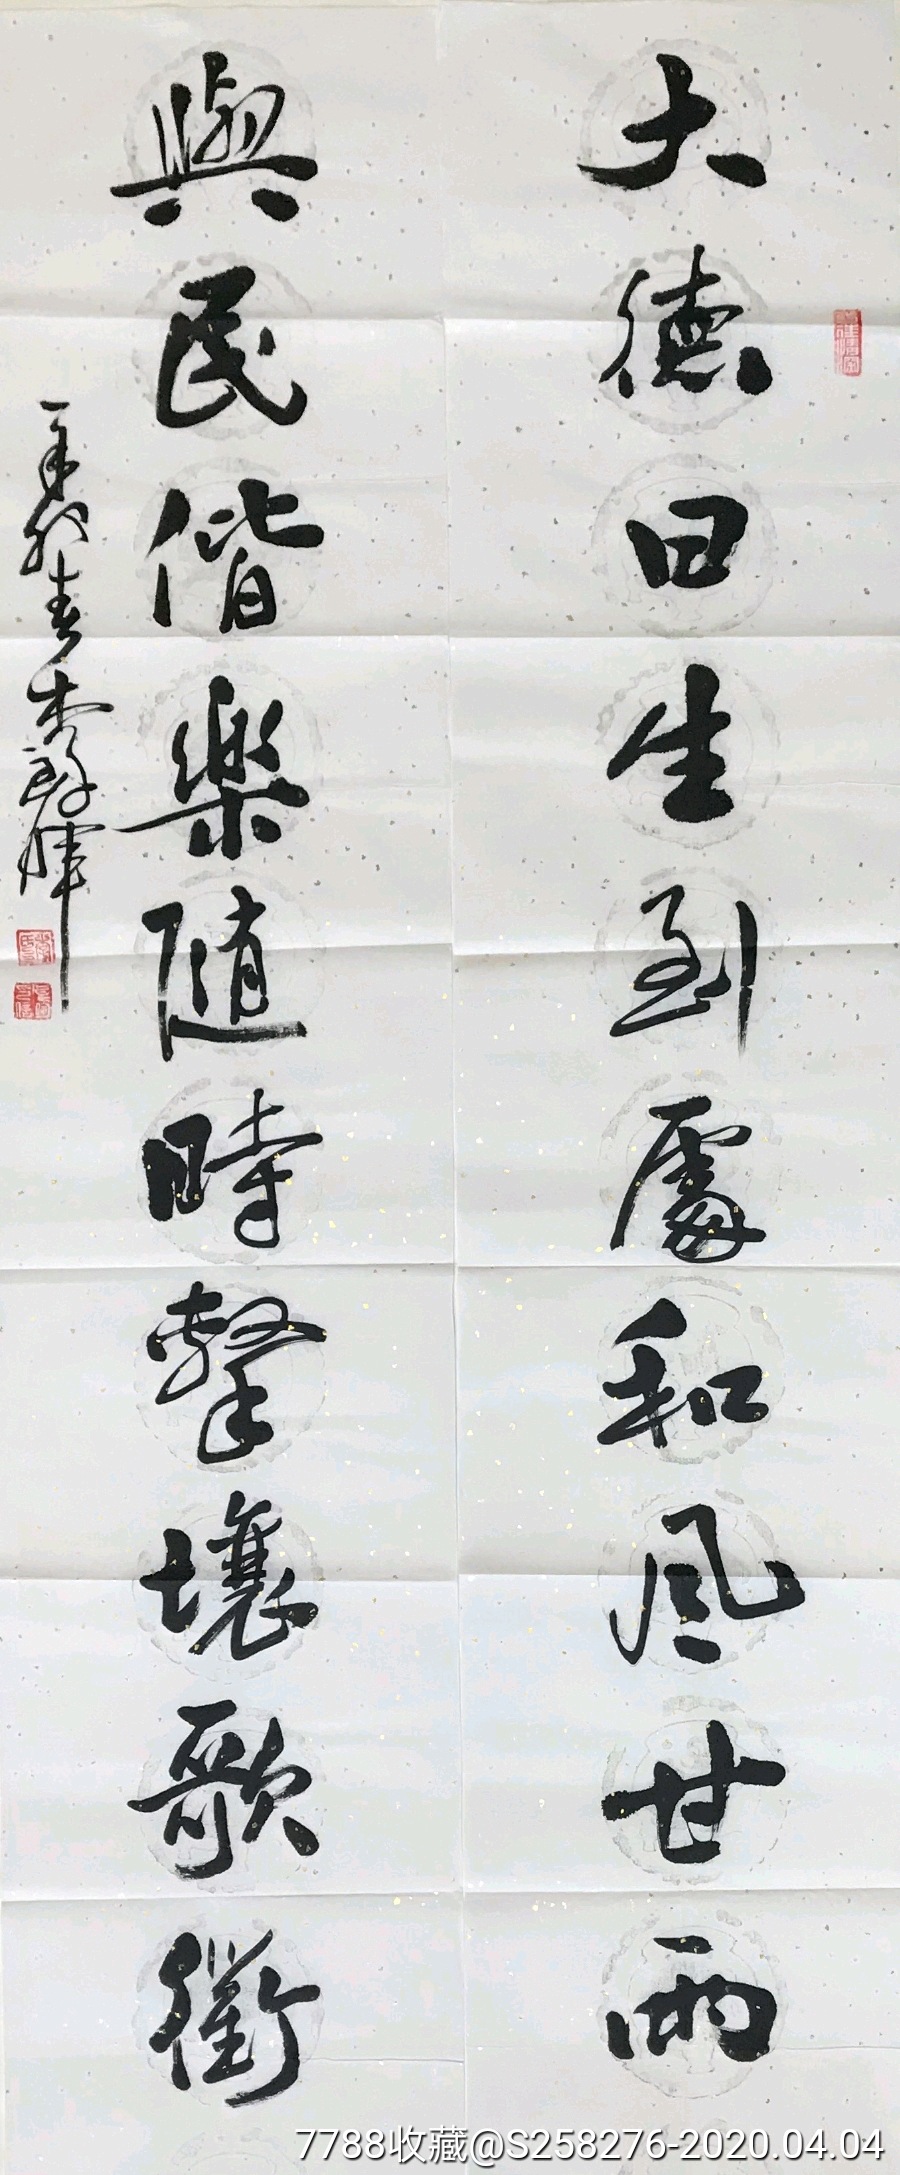 大德曰生到處和風甘雨
與民偕樂隨時擊壤歌衢
7788收藏@S258276-2020.04.04